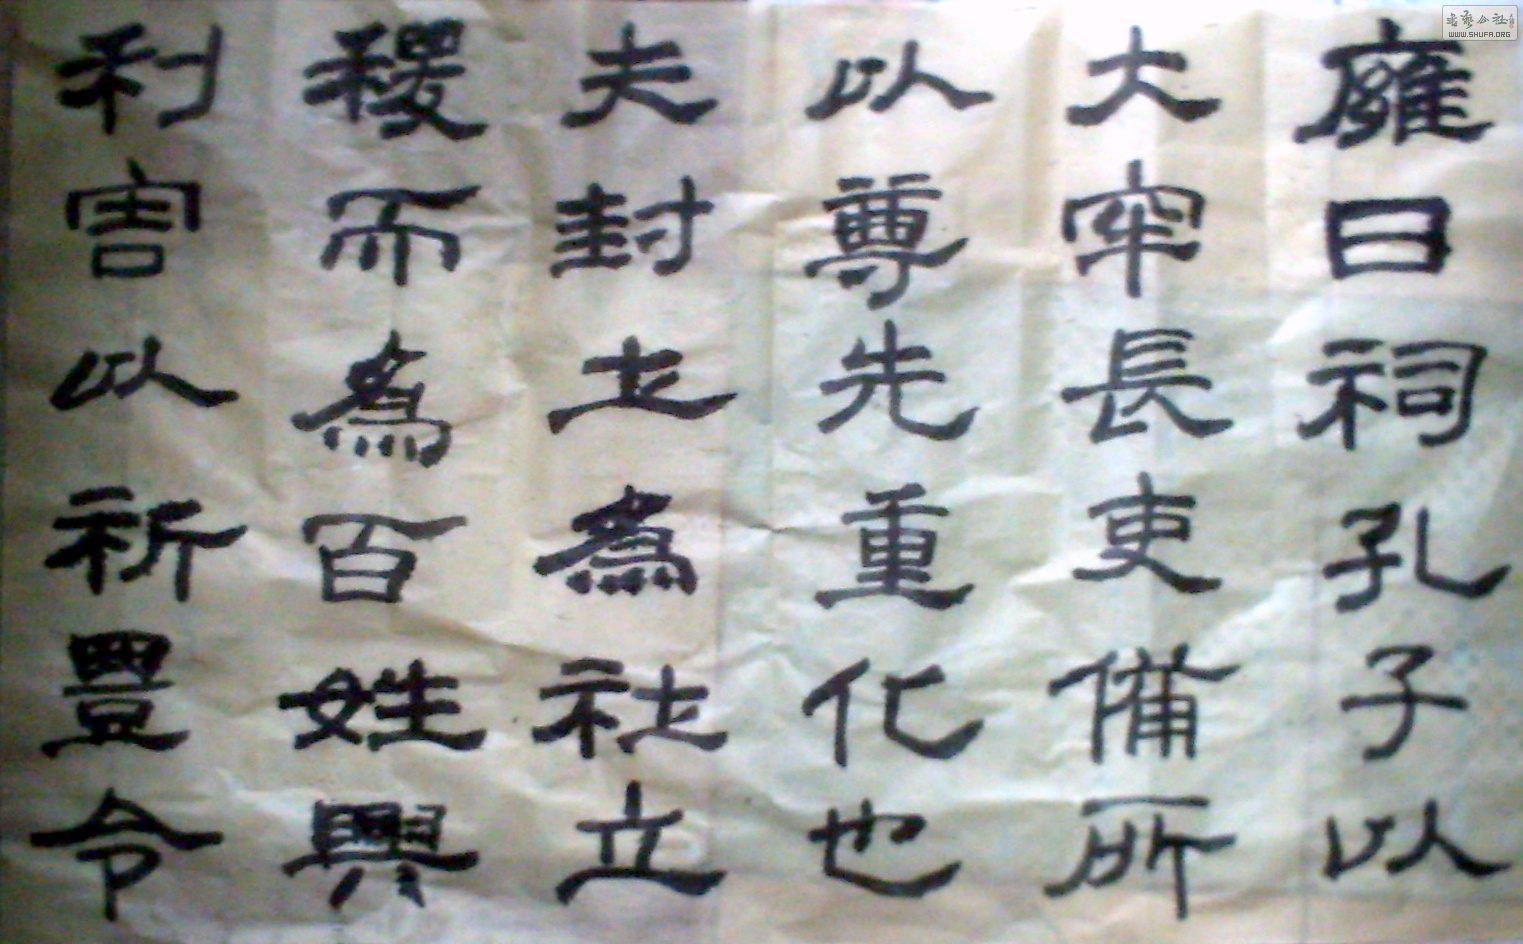 廱日祠孔子以
大牢長吏備所
以尊先重化也
夫封土為社立
稷而為百姓興
利害以祈豊令
书艺公社
WWW.SHUFA.ORG